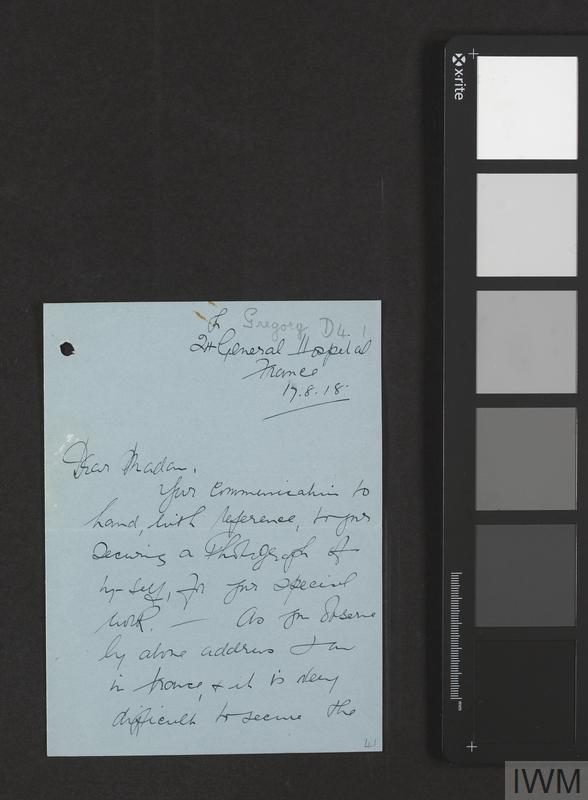 F Gregory D4. 1
24 General Hospital
France
19.8.18.
Dear Madam,
Your communication to
hand, with reference, to your
securing a Photograph of
my-self, for your special
work. — As you observe
by above address I am
in France, & it is very
difficult to secure the
41
x-rite
mm
IWM